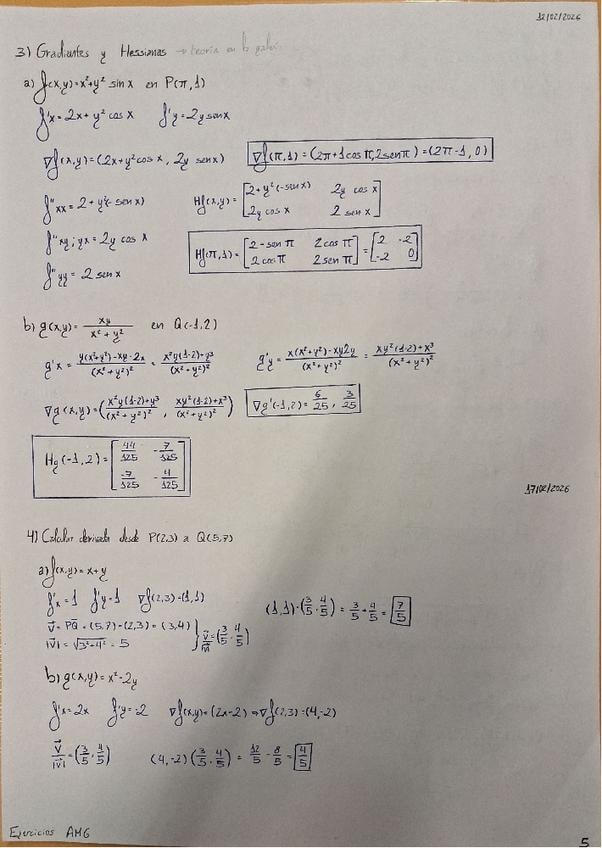 12/02/2026
3) Gradientes y Hessianas → teoría en
a) f(x,y)=x²+y² sin x en P(π,1)
f'x=2x+y² cos x f'y=2y senx
∇f(x,y)=(2x+y²cos x, 2y senx) ∇f(π,1)=(2π+1cos π, 2senπ)=(2π-1, 0)
f''xx=2+y²(-senx) Hf(x,y)=[2+y²(-senx) 2y cos x; 2y cos x 2 sen x]
f''xy; yx=2y cos x Hf(π,1)=[2-sen π 2cos π; 2cosπ 2sen π]=[2 -2; -2 0]
f''yy=2 senx
b) g(x,y)= xy/(x²+y²) en Q(-1,2)
g'x= (y(x²+y²)-xy·2x)/(x²+y²)² = (x²y(1-2)+y³)/(x²+y²)² g'y= (x(x²+y²)-xy2y)/(x²+y²)² = (xy²(1-2)+x³)/(x²+y²)²
∇g(x,y)=((x²y(1-2)+y³)/(x²+y²)², (xy²(1-2)+x³)/(x²+y²)²) ∇g'(-1,2)= 6/25, 3/25
Hg(-1,2)=[44/125 -7/125; -7/125 -4/125]
17/02/2026
4) Calcular derivada desde P(2,3) a Q(5,7)
a) f(x,y)=x+y
f'x=1 f'y=1 ∇f(2,3)=(1,1) (1,1)·(3/5, 4/5) = 3/5+4/5= 7/5
v=PQ=(5,7)-(2,3)=(3,4)
|v|=√3²+4² = 5 v/|v|=(3/5, 4/5)
b) g(x,y)=x²-2y
f'x=2x f'y=-2 ∇f(x,y)=(2x-2) ⇒∇f(2,3)=(4,-2)
v/|v|=(3/5, 4/5) (4,-2)(3/5, 4/5) = 12/5 - 8/5 = 4/5
Ejercicios AM6
5